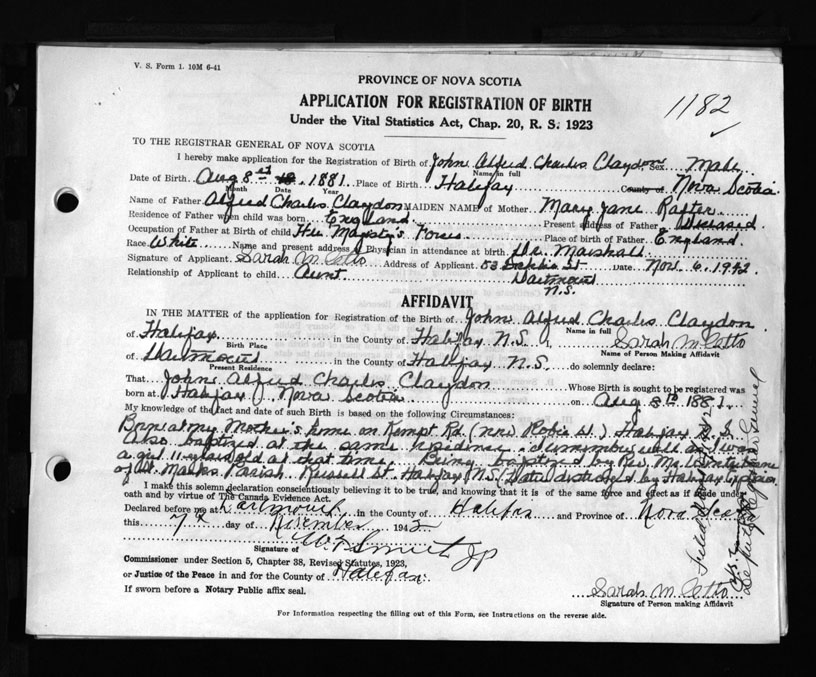 V. S. Form 1. 10M 6-41
PROVINCE OF NOVA SCOTIA
APPLICATION FOR REGISTRATION OF BIRTH
1182
Under the Vital Statistics Act, Chap. 20, R. S. 1923
TO THE REGISTRAR GENERAL OF NOVA SCOTIA
I hereby make application for the Registration of Birth of John Alfred Charles Claydon Sex Male
Name in full
Date of Birth Aug 8 1881. Place of Birth Halifax County of Nova Scotia
Month Date Year
Name of Father Alfred Charles Claydon MAIDEN NAME of Mother Mary Jane Rafter
Residence of Father when child was born England Present address of Father Deceased
Occupation of Father at Birth of child Her Majesty's Forces Place of birth of Father England
Race White Name and present address of Physician in attendance at birth Dr. Marshall
Signature of Applicant Sarah M. Address of Applicant 53 St. Date Nov. 6, 1942
Relationship of Applicant to child Aunt. Dartmouth
N.S.
AFFIDAVIT
IN THE MATTER of the application for Registration of the Birth of John Alfred Charles Claydon
Name in full
of Halifax in the County of Halifax N.S. I, Sarah M.
Birth Place Name of Person Making Affidavit
of Dartmouth in the County of Halifax N.S. do solemnly declare:
Present Residence
That John Alfred Charles Claydon Whose Birth is sought to be registered was
born at Halifax, Nova Scotia on Aug 8th 1881.
My knowledge of the fact and date of such Birth is based on the following Circumstances:
Born at my Mother's home on Kempt Rd (now Robie St.) Halifax N.S.
Also baptized at the same residence. I remember well as I was
a girl 11 years old at that time. Being baptized by Rev. Mr.
of St. Marks Parish Russell St. Halifax N.S. (Data destroyed by Halifax Explosion
I make this solemn declaration conscientiously believing it to be true, and knowing that it is of the same force and effect as if made under
oath and by virtue of The Canada Evidence Act.
Declared before me at Dartmouth in the County of Halifax and Province of Nova Scotia
this 7th day of November 1942
W. Smith JP
Signature of
Commissioner under Section 5, Chapter 38, Revised Statutes, 1923,
or Justice of the Peace in and for the County of Halifax.
If sworn before a Notary Public affix seal.
Sarah M.
Signature of Person making Affidavit
For Information respecting the filling out of this Form, see Instructions on the reverse side.
Filed
Deputy Registrar General